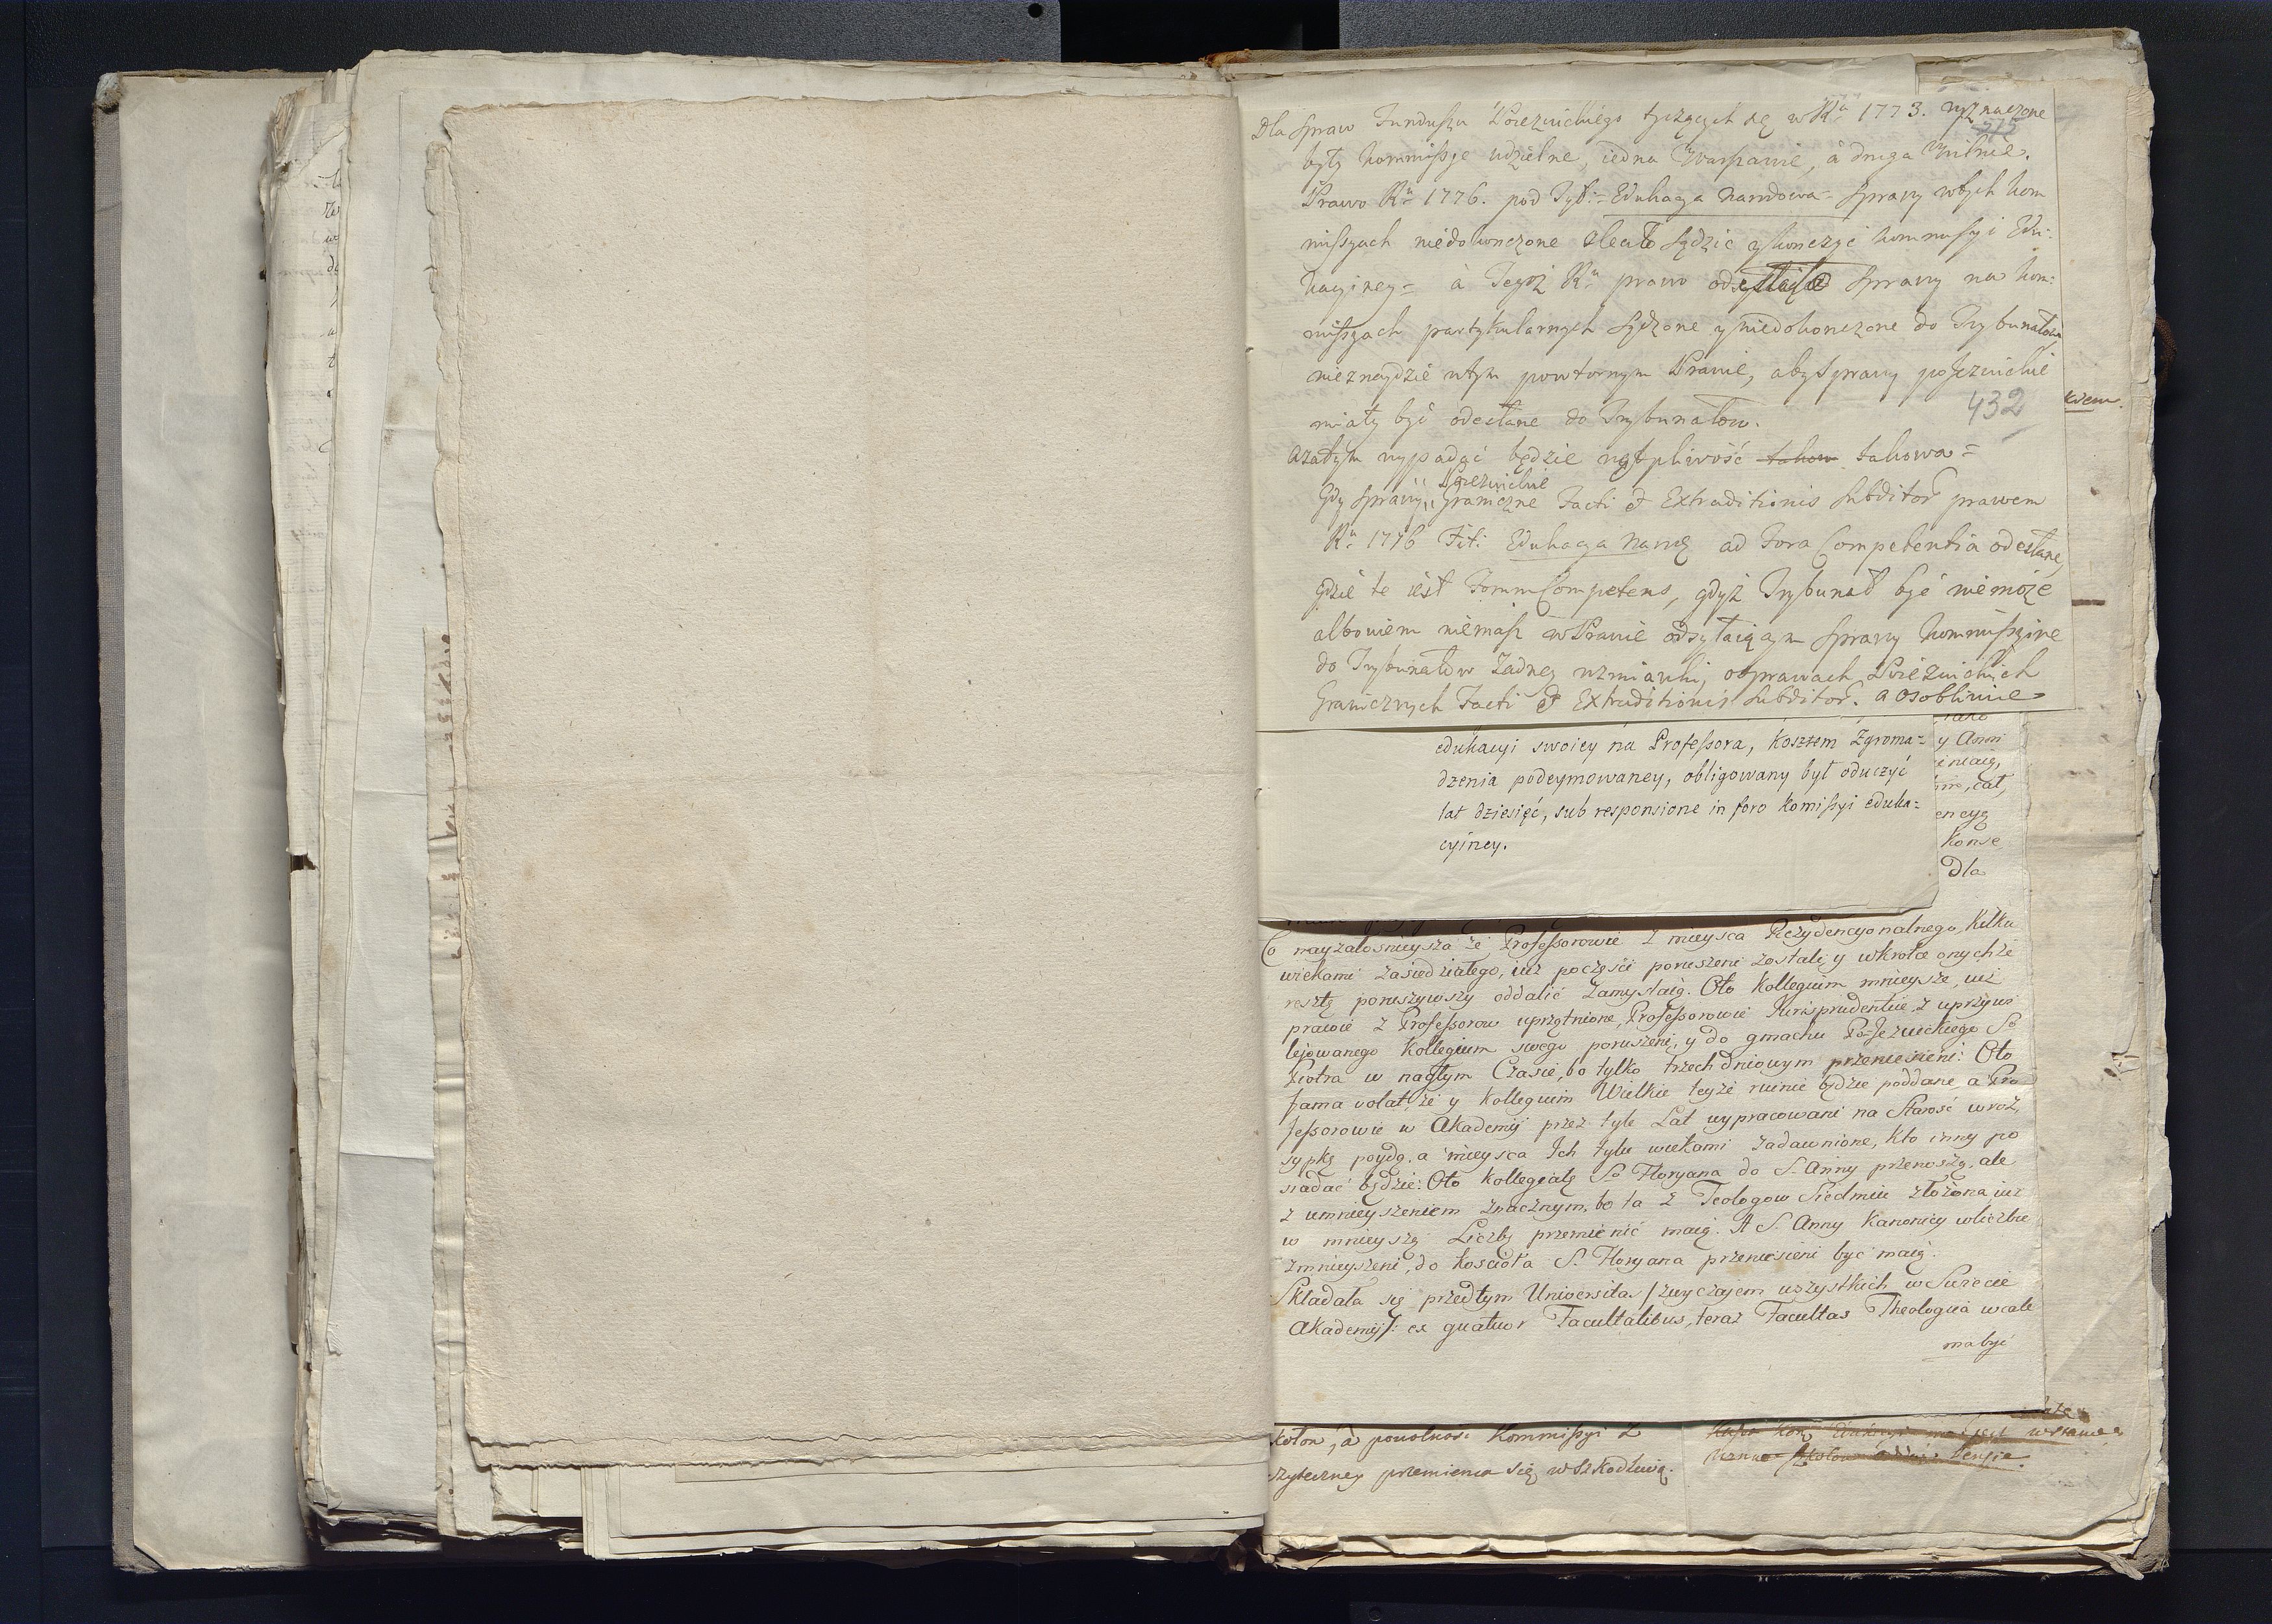 Dla spraw Funduszu Poiezuickiego tyczących się w Rů 1773. wyznaczone
były kommissye udzielne, iedna Warszawie, á druga Wilnie.
Prawo Rů 1776. pod Tyt:= Edukacya Narodowa= sprawy wtych kom
missyach niedokonczone zleciło sądzić y konczyć kommissyi Edu:
kacyiney= á Tegoż Rů prawo odsyłaiące sprawy na kom:
missyach partykularnych sądzone y niedokonczone do Trybunałow
nieznaydzie wtym powtornym Prawie, aby sprawy pojezuickie
432
miały być odesłane do Trybunałow.
azatym wypadać będzie wątpliwość takow takowa=
Poiezuickie
Gdy sprawy Graniczne Facti et Extraditionis subditor prawem
Rů 1776 Tit: Edukacya Narod ad Fora Competentia odesłane,
gdzie te iest Forum Competens, gdyż Trybunał być niemoże
albowiem niemasz w Prawie odsyłaiącym sprawy kommissyine
do Trybunałow żadney wzmianki, osprawach Poiezuickich
Granicznych Facti et Extraditionis subditor. a osobliwie
edukacyi swoiey na Professora, kosztem Zgroma=
dzenia podeymowaney, obligowany był oduczyć
lat dziesięć, sub responsione in foro Komissyi eduka=
cyiney.
y Anni
encyą
Konse
Dla
Co nayżałosnieysza że Professorowie z mieysca Rezydencyonalnego, kilku
wiekami zasiedziałego, iuż poczęści poruszeni zostali, y wkrotce onychże
resztę poruszywszy oddalić zamyslaią. Oto Kollegium mnieysze, iuż
prawie z Professorow uprzątnione, Professorowie Jurisprudentiæ, z uprzywi
lejowanego Kollegium swego poruszeni, y do gmachu Po-Jezuickiego So
Piotra w nagłym Czasie, bo tylko trzech dniowym przeniesieni: Oto
fama volat, że y Kollegium Wielkie teyże ruinie będzie poddane, a Pro
fessorowie w Akademij przez tyle Lat wypracowani na Starość w roz,
sypkę poydą, a mieysca Ich tylu wiekami zadawnione, kto inny po
siadać będzie: Oto Kollegiatę So Floryana do S. Anny przenoszą, ale
z umnieyszeniem znacznym, bo ta z Teologow Siedmiu złożona, iuż
w mnieyszą Liczbę przemienić maią. A S. Anny Kanonicy wliczbie
zmnieyszeni, do Kościoła S. Floryana przeniesieni być maią.
Składała się przedtym Universitas /zwyczajem wszystkich w Swiecie
Akademij/: ex quatuor Facultatibus, teraz Facultas Theologica wcale
ma być
kołom, á powolność Kommissyi z
żyteczney przemienia się w szkodliwą.